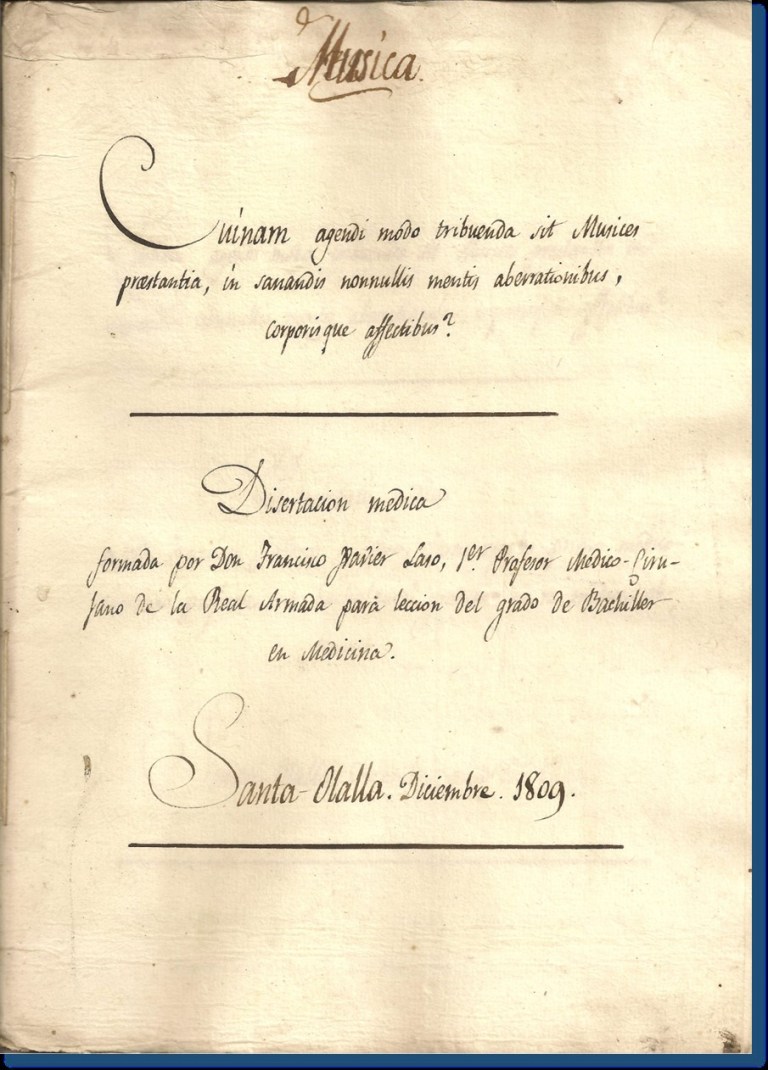 Musica.
Cuinam agendi modo tribuenda sit Musices
præstantia, in sanandis nonnullis mentis aberrationibus,
corporisque affectibus?
Disertacion medica
formada por Don Francisco Xavier Laso, 1er. Profesor Medico-Ciru-
jano de la Real Armada para leccion del grado de Bachiller
en Medicina.
Santa-Olalla. Diciembre. 1809.